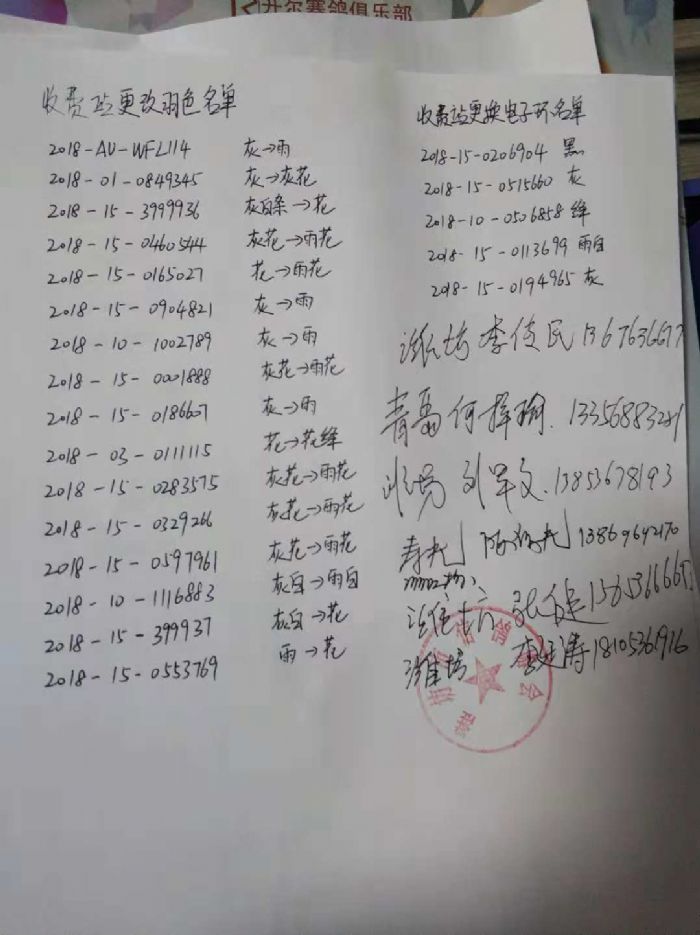 升尔赛鸽俱乐部
收费站更改羽色名单
2018-AU-WFL114 灰→雨
2018-01-0849345 灰→灰花
2018-15-3999936 灰白条→花
2018-15-0460544 灰花→雨花
2018-15-0165027 花→雨花
2018-15-0904821 灰→雨
2018-10-1002789 灰→雨
2018-15-0001888 灰花→雨花
2018-15-0186607 灰→雨
2018-03-0111115 花→花绛
2018-15-0283575 灰花→雨花
2018-15-0329266 灰花→雨花
2018-15-0597961 灰花→雨花
2018-10-1116883 灰白→雨白
2018-15-399937 灰白→花
2018-15-0553769 雨→花
收费站更换电子环名单
2018-15-0206904 黑
2018-15-0515660 灰
2018-10-0506858 绛
2018-15-0113699 雨白
2018-15-0194965 灰
潍坊 李俊民 13676366
青岛 何 133568832
临朐 刘 文.13853678193
寿光 13869642170
张 健
潍坊 李廷涛18105361916
信鸽 会